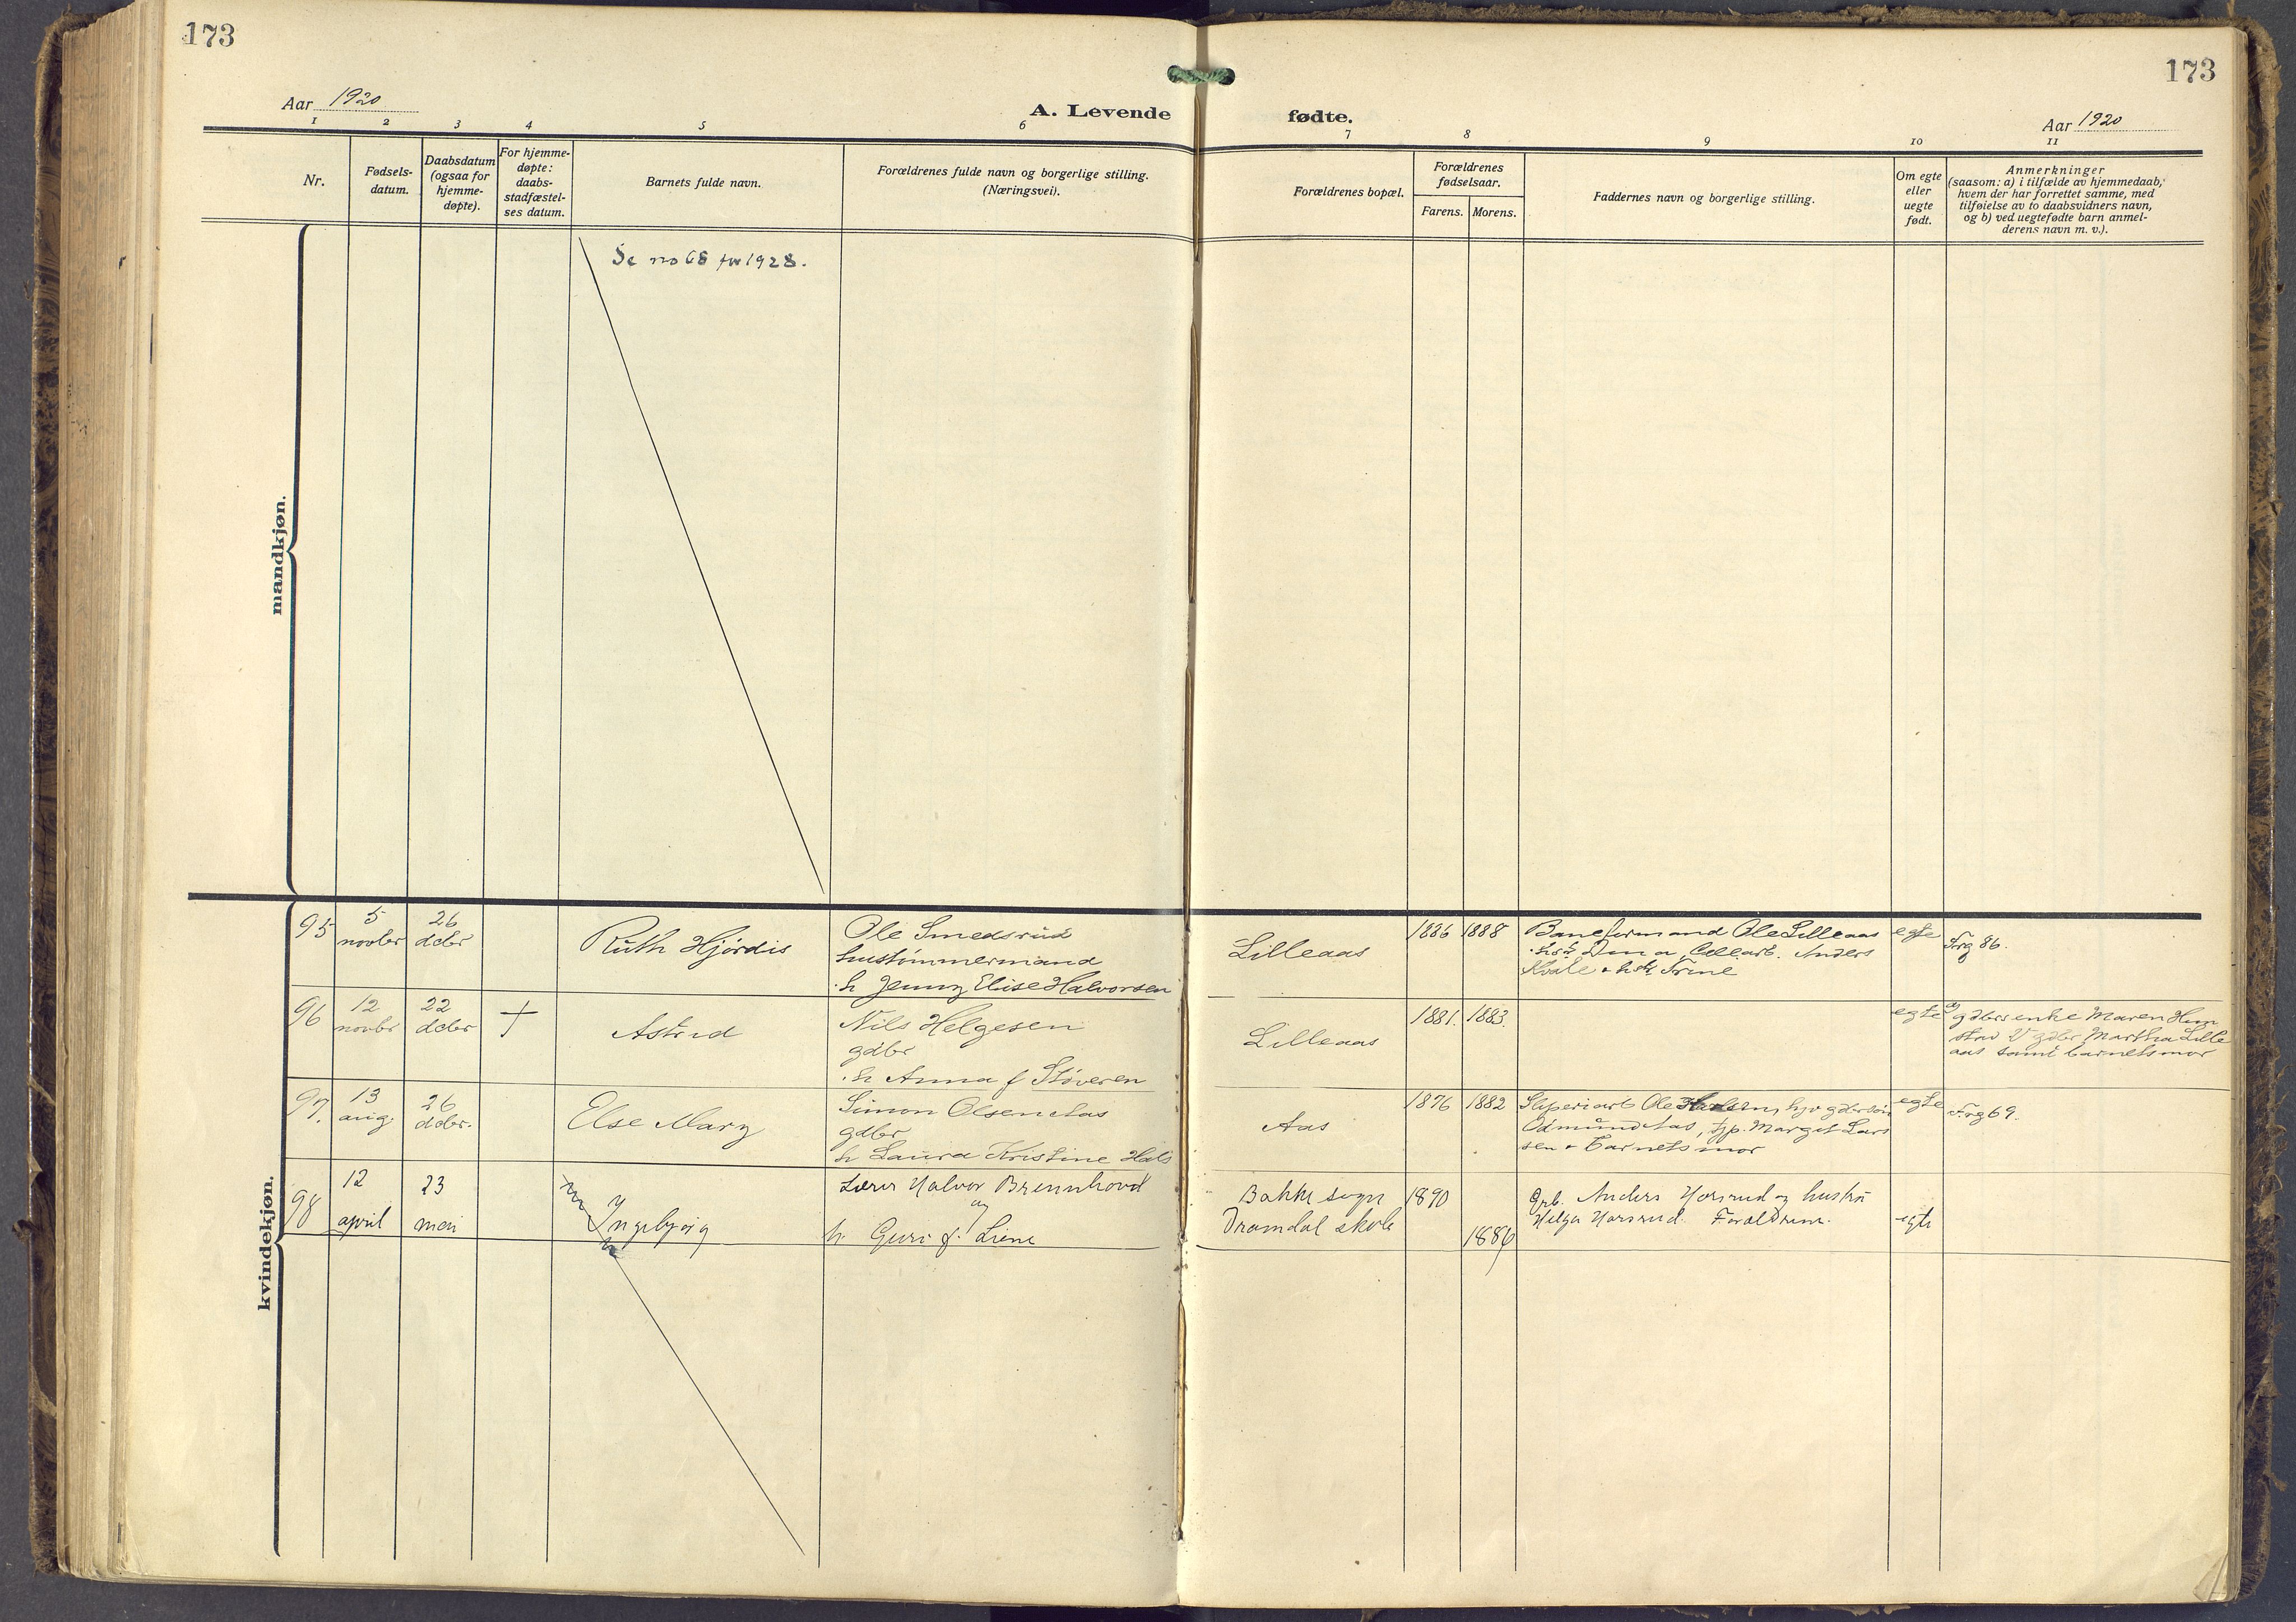 173
173
Aar 1920
A. Levende fødte.
Aar 1920
1 2 3 4 5 6 7 8 9 10 11
Nr.
Fødsels-
datum.
Daabsdatum
(ogsaa for
hjemme-
døpte).
For hjemme-
døpte:
daabs-
stadfæstel-
ses datum.
Barnets fulde navn.
Forældrenes fulde navn og borgerlige stilling.
(Næringsvei).
Forældrenes bopæl.
Forældrenes
fødselsaar.
Farens. Morens.
Faddernes navn og borgerlige stilling.
Om egte
eller
uegte
født.
Anmerkninger
(saasom: a) i tilfælde av hjemmedaab,
hvem der har forrettet samme, med
tilføielse av to daabsvidners navn,
og b) ved uegtefødte barn anmel-
derens navn m. v.).
mandkjøn.
Se no 68 for 1928.
kvindekjøn.
95
5
novbr
26
dcbr
Ruth Hjørdis
Ole Smedsrud
hustømmermand
h Jenny Elise Halvorsen
Lilleaas
1886 1888
Baneformand Ole Lilleaas
Anders
Kvale & hstr Trine
egte
Frg 86.
96
12
novbr
22
dcbr
+
Astrid
Nils Helgesen
gdbr
h Anna f Støveren
Lilleaas
1881. 1883.
egte
gdbrs enke Maren Hun
stad gdbr Martha Lille
aas samt barnets mor
97.
13
aug.
26
dcbr.
Else Mary
Simon Olsen Aas
gdbr
h Laura Kristine Hals
Aas
1876 1882
Sliperiarb Ole gdbrsøn
Odmund Aas, tjp. Margit Lars
sen & barnets mor
egte
Frg 69.
98
12
april
23
mai
Yngebjørg
Lærer Halvor Brennhovd
og
h. Guri f. Liene
Bakke sogn
Dramdal skole
1890
1886
Grb. Anders Horsrud og hustru
Helga Horsrud. Forældrene.
egte